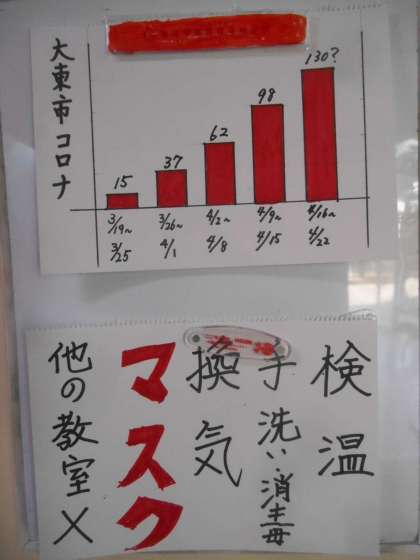 大東市コロナ
15
37
62
98
130?
3/19~
3/25
3/26~
4/1
4/2~
4/8
4/9~
4/15
4/16~
4/22
検温
手洗い・消毒
換気
マスク
他の教室×